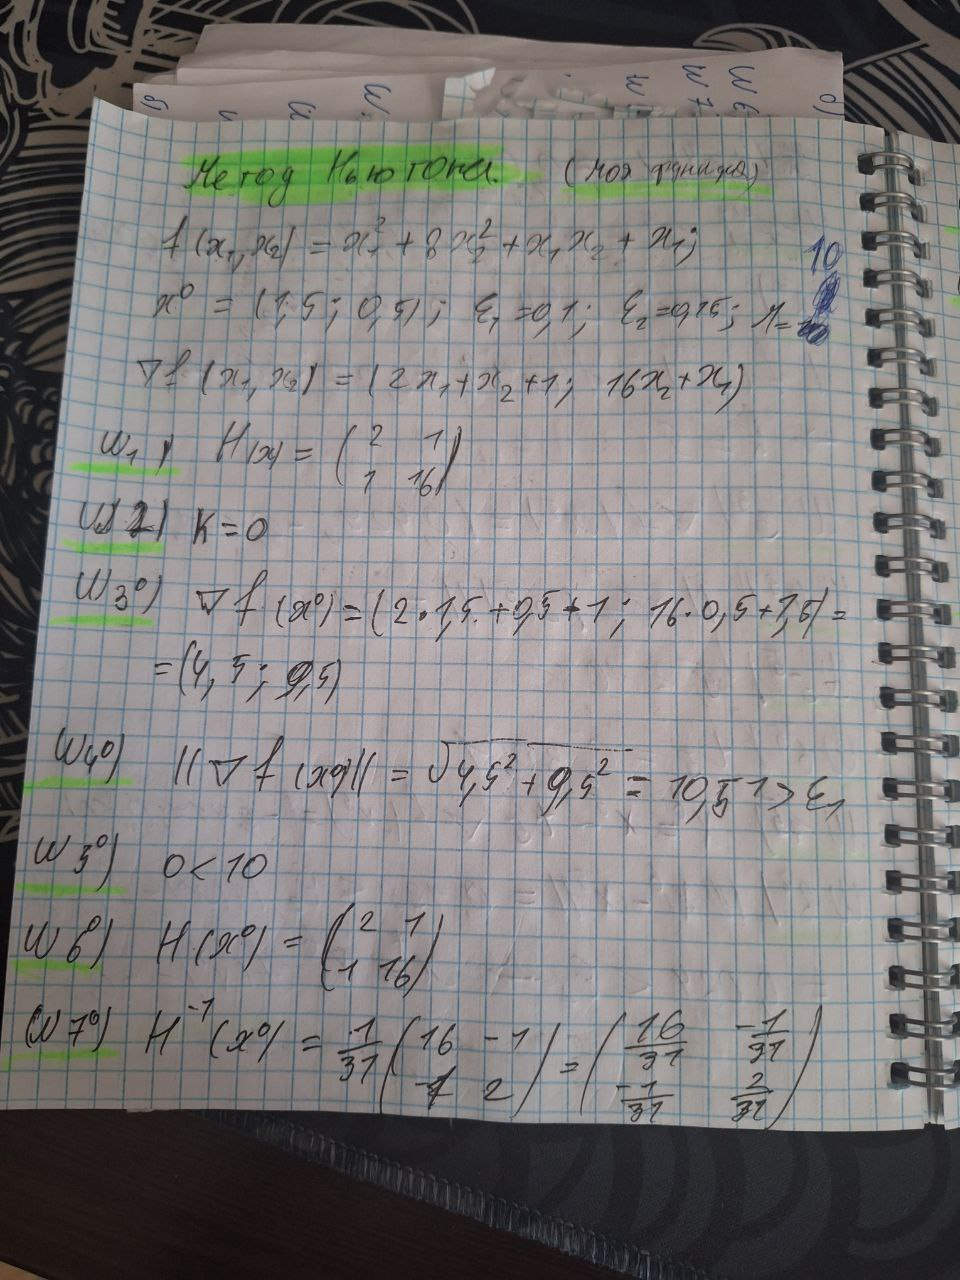 Метод Ньютона. (моя функция)
f(x₁, x₂) = x₁² + 8x₂² + x₁x₂ + x₁;
10
x⁰ = (1,5; 0,5); ε₁ = 0,1; ε₂ = 0,15; M =
∇f(x₁, x₂) = (2x₁ + x₂ + 1; 16x₂ + x₁)
Ш1) H(x) = (2 1
1 16)
Ш2) K = 0
Ш3⁰) ∇f(x⁰) = (2·1,5 + 0,5 + 1; 16·0,5 + 1,5) =
= (4,5; 9,5)
Ш4⁰) ||∇f(x⁰)|| = √4,5² + 9,5² = 10,51 > ε₁
Ш5⁰) 0 < 10
Ш6⁰) H(x⁰) = (2 1
1 16)
Ш7⁰) H⁻¹(x⁰) = 1/31 (16 -1
-1 2) = (16/31 -1/31
-1/31 2/31)